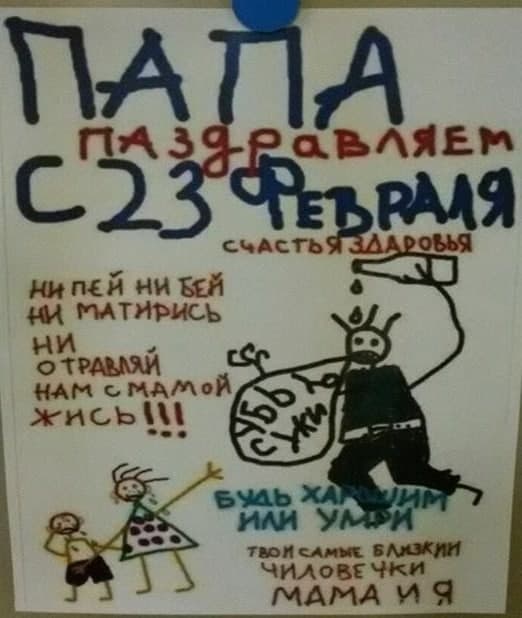 ПАПА
ПАЗдРаВЛЯЕМ
С 23 ФЕВРАЛЯ
СЧАСТЬЯ ЗДАРОВЬЯ
НИ ПЕЙ НИ БЕЙ
НИ МАТИРИСЬ
НИ
ОТРАВЛЯЙ
НАМ С МАМОЙ
ЖИСЬ!!!
УБЬЮ
СУКИ
БУДЬ ХАРОШИМ
ИЛИ УМРИ
ТВОИ САМЫЕ БЛИЗКИИ
ЧИЛОВЕЧКИ
МАМА И Я